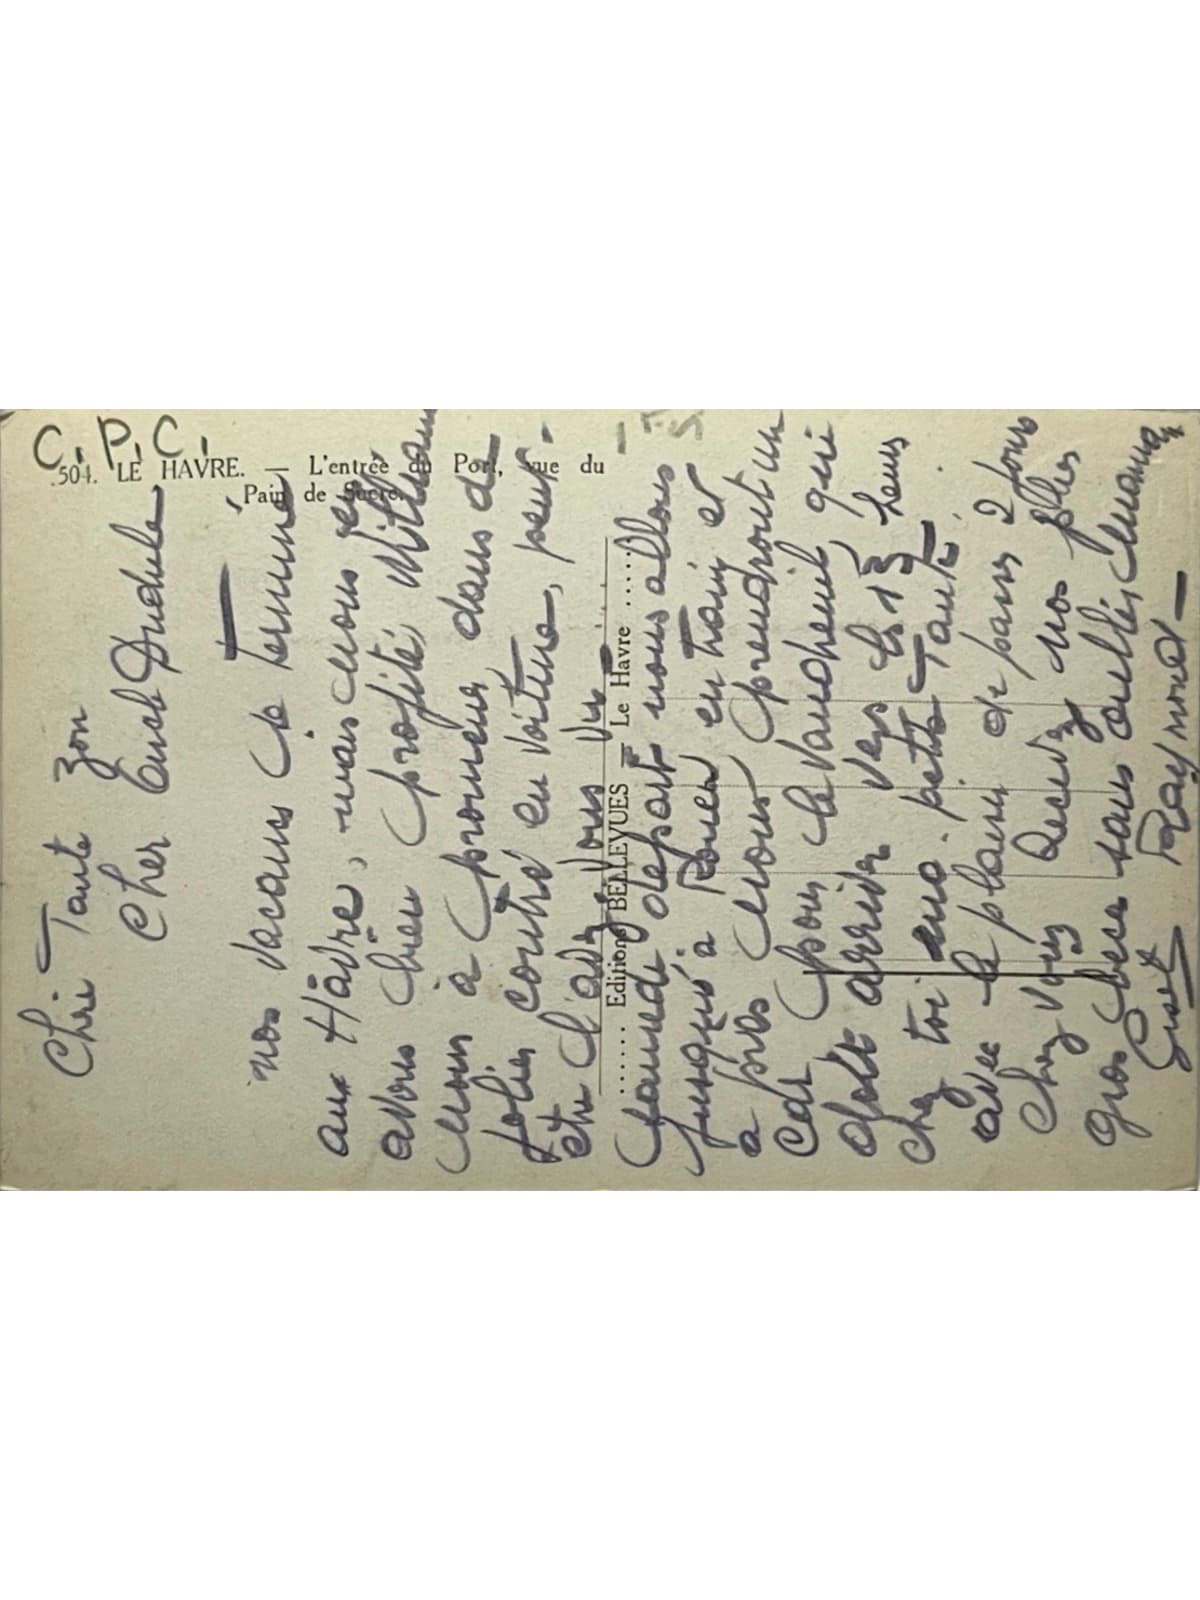 C.P.C.
504. LE HAVRE. — L'entrée du Port, vue du
Pain de Sucre.
Editions BELLEVUES — Le Havre
Chri Tante Zon
Cher Dudule
nos vacances se termine
aux Hâvre, mais nous
avons bien profité
nous a promener dans de
jolies en voiture, peut-
etre l'avez vous vu.
Samedi depart nous allons
jusqu'à Rouen en train et
a pres nous prendront un
car pour le Vaudreuil qui
doit arriver vers les 13 heurs
chez toi ma petite Tante.
avec le plaisir de passer 2 jours
chez vous Recevez nos plus
gros becs sans oublié maman
Raymond